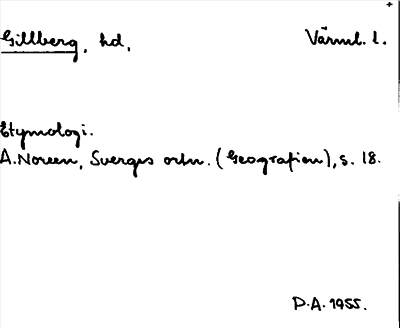 Gillberg, hd, Värml. l.
Etymologi.
A. Noreen, Sverges ortn. (Geografien), s. 18.
P.A. 1955.